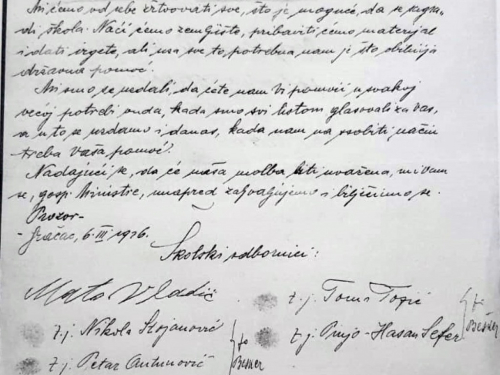 Mi ćemo od sebe žrtvovati sve, što je moguće, da se sagra-
di škola. Naći ćemo zemljište, pribaviti ćemo materijal
i dati izgete, ali uza sve to potrebna nam je što obilnija
državna pomoć.
Mi smo se nadali, da ćete nam Vi pomoći u svakoj
većoj potrebi onda, kada smo svi listom glasovali za Vas,
a u to se uzdamo i danas, kada nam na osobiti način
treba Vaša pomoć.
Nadajući se, da će naša molba biti uvažena, mi Vam
se, gosp. Ministre, unapred zahvaljujemo i bilježimo se.
Prozor-
- Gračac, 6. III 1936.
Školski odbornici:
Mato Vladić
ž.j. Nikola Stojanović
ž.j. Petar Antunović
ž.j. Toma Topić
ž.j. Pujo-Hasan Sefer